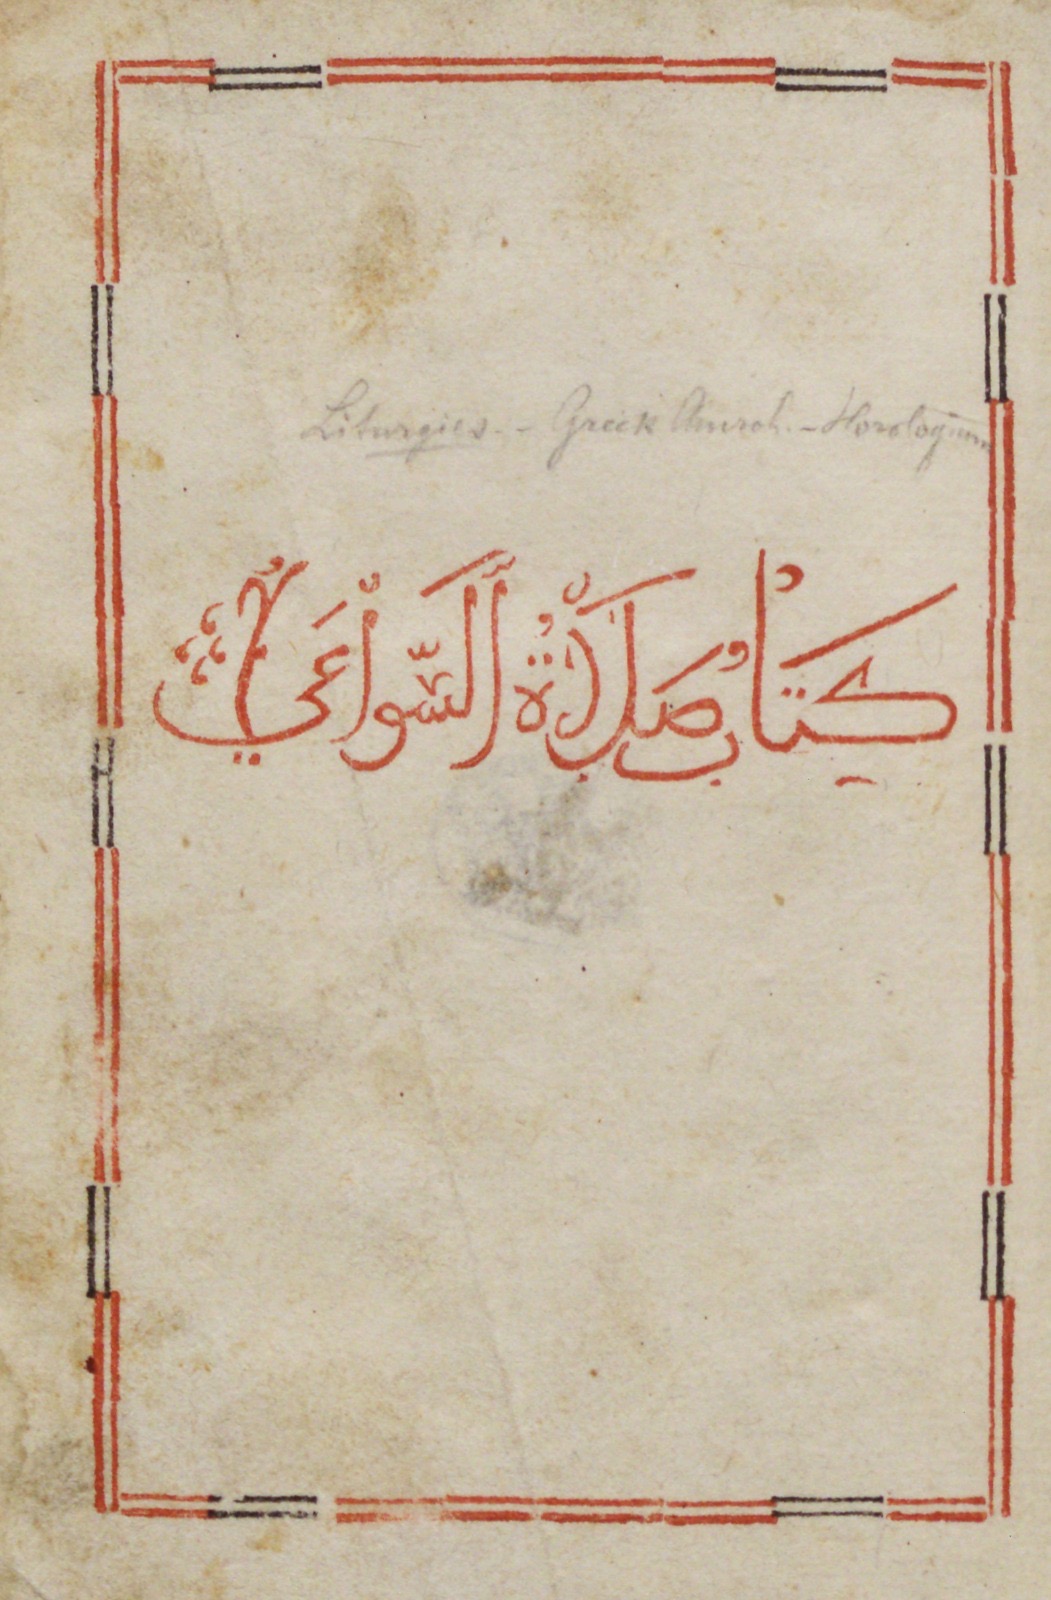 Liturgies. - Greek Church. - Horologium
كتاب صلاة السواعي